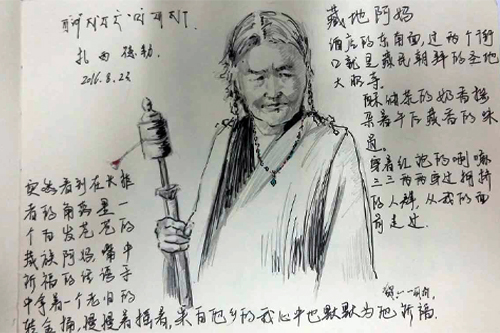 扎西德勒
2016.8.23
藏地阿妈
酒店的东南面,过两个街
口就是藏民朝拜的圣地
大昭寺。
酥油茶的奶香搀
杂着午后藏香的味
道。
穿着红袍的喇嘛
三三两两穿过拥挤
的人群,从我的面
前走过.
突然看到在大
者的角落里一
个白发苍苍的
藏族阿妈,嘴中
祈福的话语手
中拿着一个老旧的
转金桶,慢慢着摇着,来自他乡的我心中也默默为她祈福.